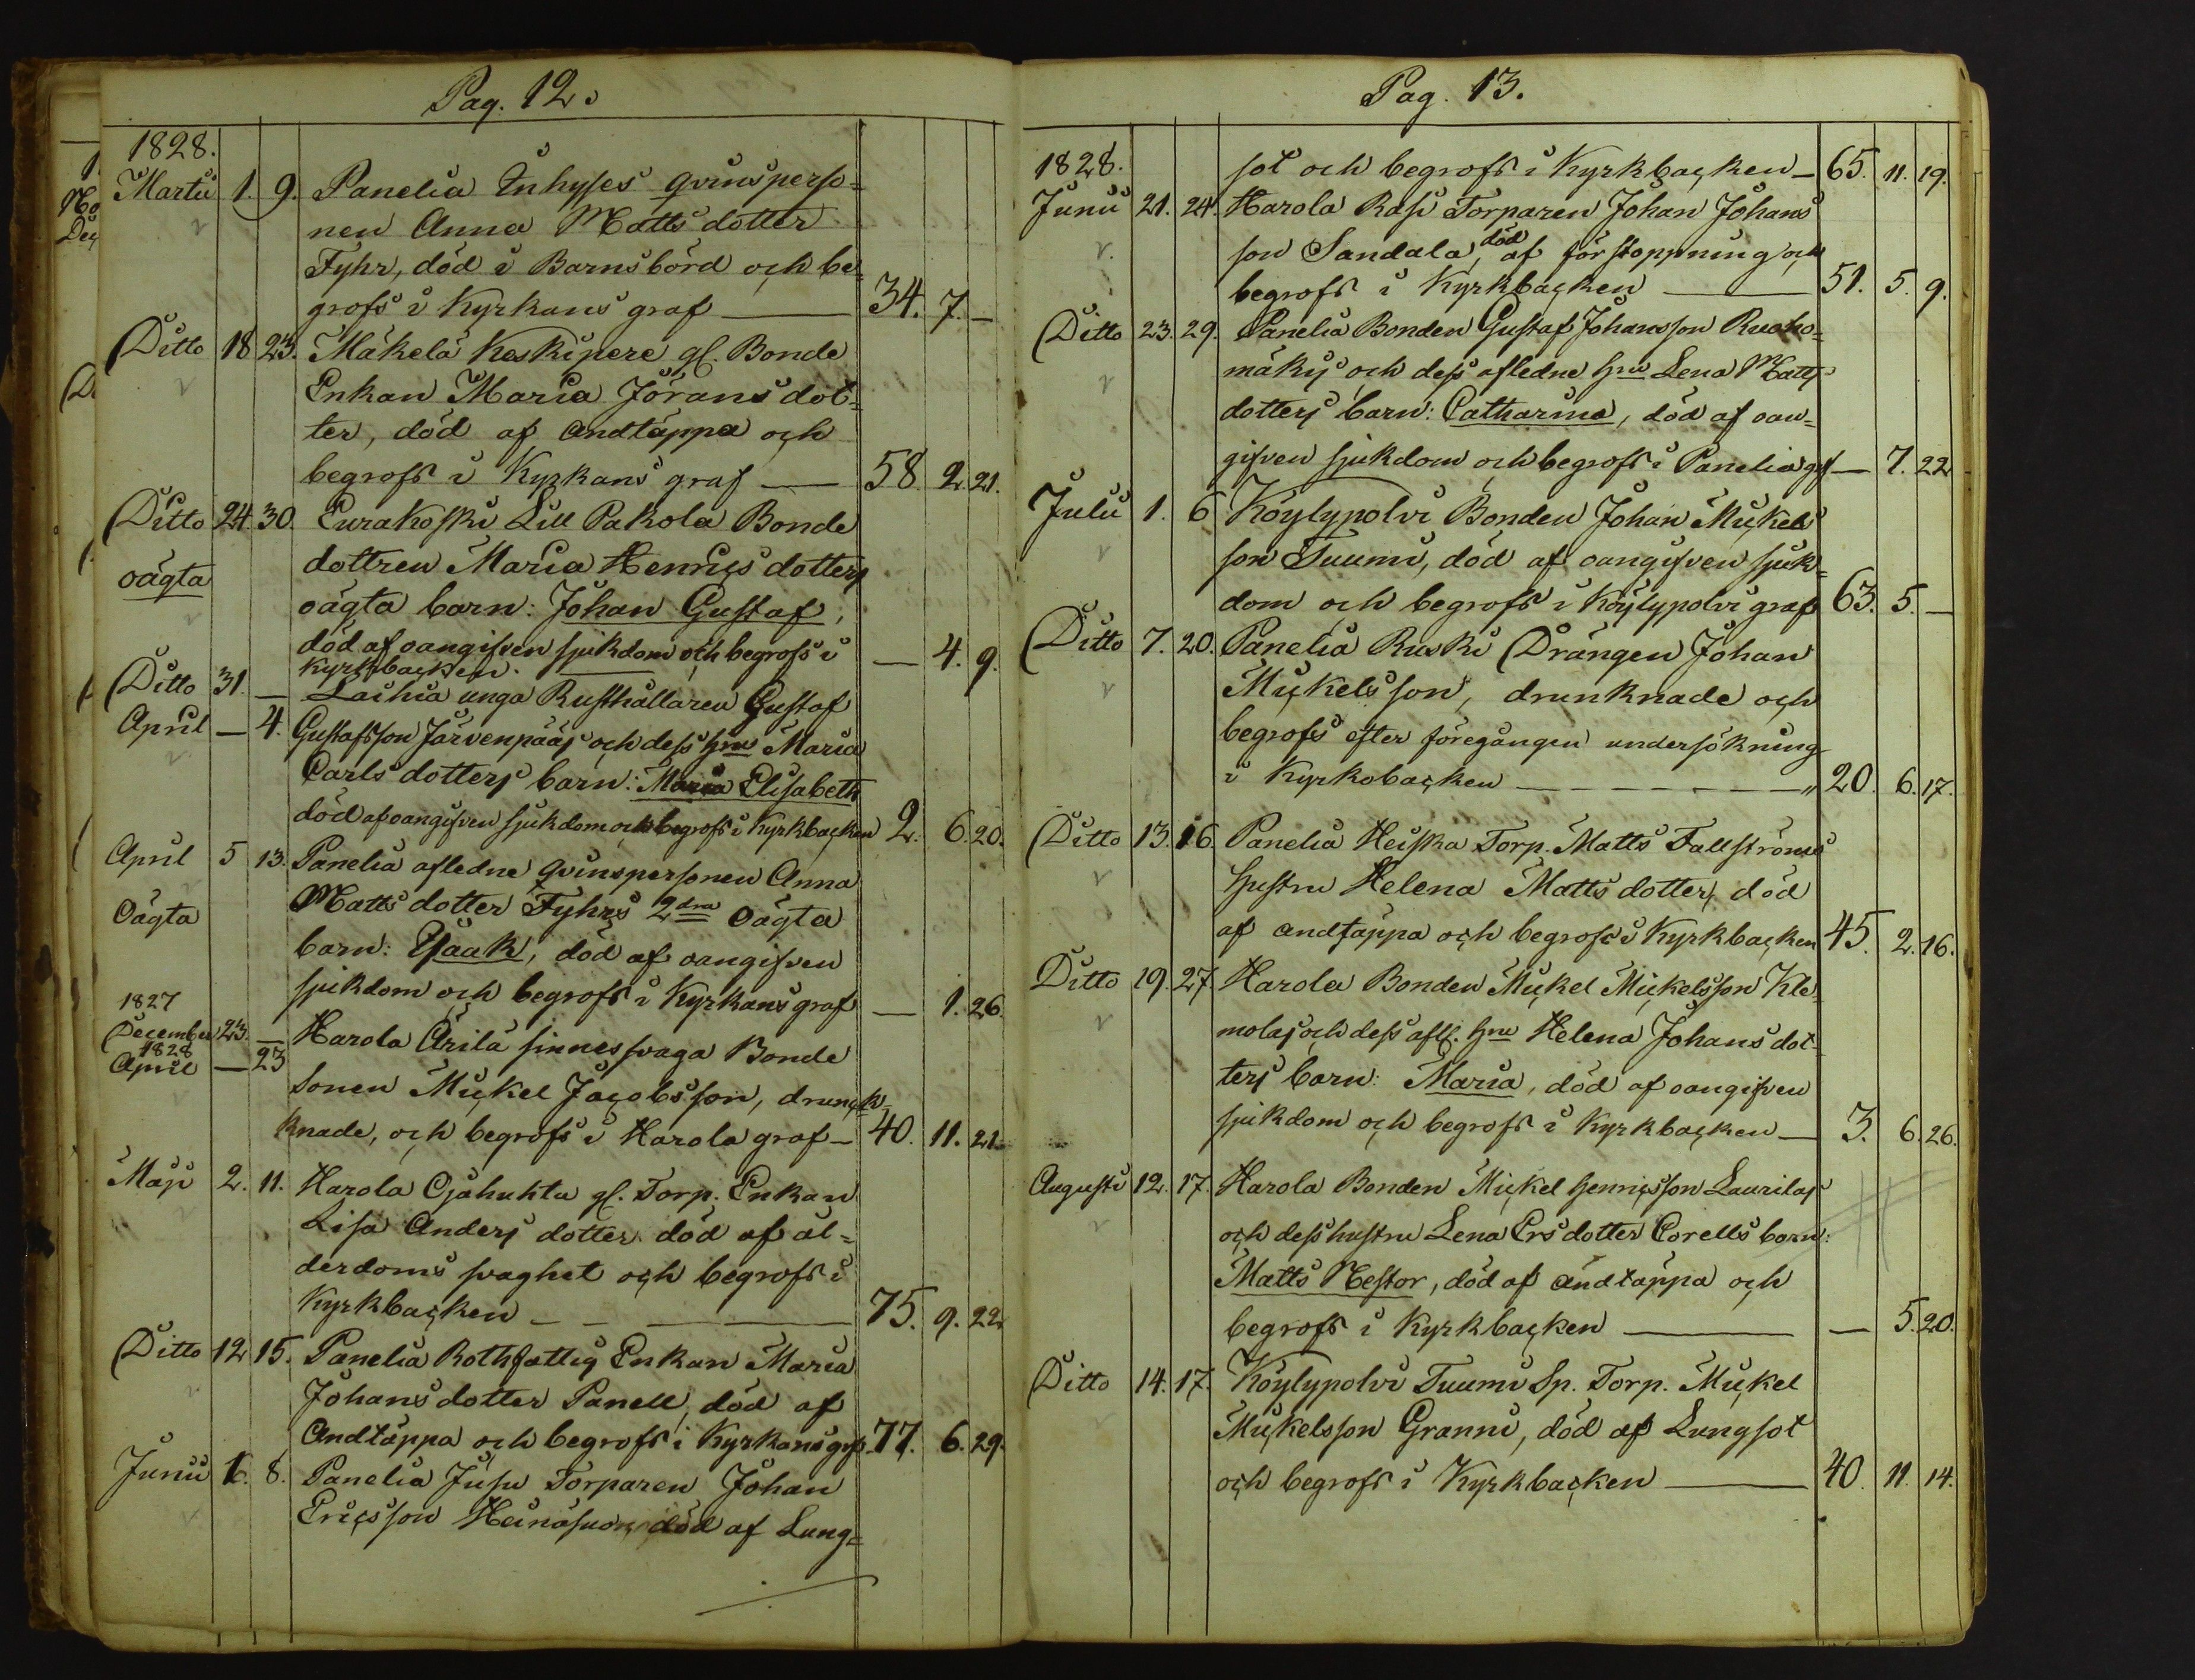 Pag. 12.
1828.
Martii 1. 9. Panelia Inhyses qvinsperso=
nen Anna Matts dotter
Fyhr, död i Barnsbörd och be=
grofs i Kyrkans graf — 34. 7. —
Ditto 18 23. Mäkelä Keskipere gl. Bonde
Enkan Maria Jörans dot=
ter, död af andtäppa och
begrofs i Kyrkans graf — 58 2 21.
Ditto 24 30. Eurakoski Lill Pakola Bonde
oägta dottren Maria Henrics dotters
oägta barn: Johan Gustaf,
död af oangifven sjukdom och begrofs i
Kyrkbacken. — — 4. 9.
Ditto 31. — Laihia unga Rusthållaren Gustaf
April — 4. Gustafsson Järvenpääs och dess hru Maria
Carls dotters barn: Maria Elisabeth
död af oangifven sjukdom och begrofs i Kyrkbacken 2. 6. 20.
April 5 13. Panelia afledne qvinspersonen Anna
Oägta Matts dotter Fyhrs 2dra oägta
barn: Isaak, död af oangifven
sjukdom och begrofs i Kyrkans graf — 1. 26.
1827
December 23. — Harola Ärilä sinnessvaga Bonde
1828
April — 23
Sonen Mickel Jacobsson, drunck=
knade, och begrofs i Harola graf — 40. 11. 21.
Maji 2. 11. Harola Ojahuhta gl. Torp. Enkan
Lisa Anders dotter död af ål=
derdoms svaghet och begrofs i
Kyrkbacken — — — 75. 9. 22
Ditto 12 15. Panelia Rothfattig Enkan Maria
Johans dotter Panell, död af
Andtäppa och begrofs i Kyrkans grf. 77. 6. 29.
Junii 6. 8. Panelia Juusu Torparen Johan
Ericsson Heinäsuo, död af Lung=
Pag. 13.
1828. sot och begrofs i Kyrkbacken — 65. 11. 19.
Junii 21. 24. Harola Rasi Torparen Johan Johans
son Sandala, död af förstoppning och
begrofs i Kyrkbacken — 51. 5. 9.
Ditto 23. 29. Panelia Bonden Gustaf Johansson Ruoho=
mäkis och dess afledne hru Lena Matts
dotters barn: Catharina, död af oan=
gifven sjukdom och begrofs i Panelia grf — 7. 22
Julii 1. 6 Köylypolvi Bonden Johan Mickels
son Tuumi, död af oangifven sjuk=
dom och begrofs i Köylypolvi graf 63. 5. —
Ditto 7. 20. Panelia Ruski Drängen Johan
Mickelsson, drunknade och
begrofs efter föregången undersökning
i Kyrkobacken — — — — — „ 20. 6. 17.
Ditto 13. 16 Panelia Heiska Torp. Matts Fallströms
Hustru Helena Matts dotter, död
af andtäppa och begrofs i Kyrkbacken 45. 2. 16.
Ditto 19. 27 Harola Bonden Mickel Mickelsson Kle=
molas och dess afl. hru Helena Johans dot=
ters barn: Maria, död af oangifven
sjukdom och begrofs i Kyrkbacken — 3. 6. 26.
Augusti 12. 17. Harola Bonden Mickel Henricsson Laurilas
och dess hustru Lena Ers dotter Corells barn:
Matts Nestor, död af andtäppa och
begrofs i Kyrkbacken — — 5. 20.
Ditto 14. 17. Köylypolvi Tuumi Sp. Torp. Mickel
Mickelsson Granni, död af Lungsot
och begrofs i Kyrkbacken — 40. 11. 14.